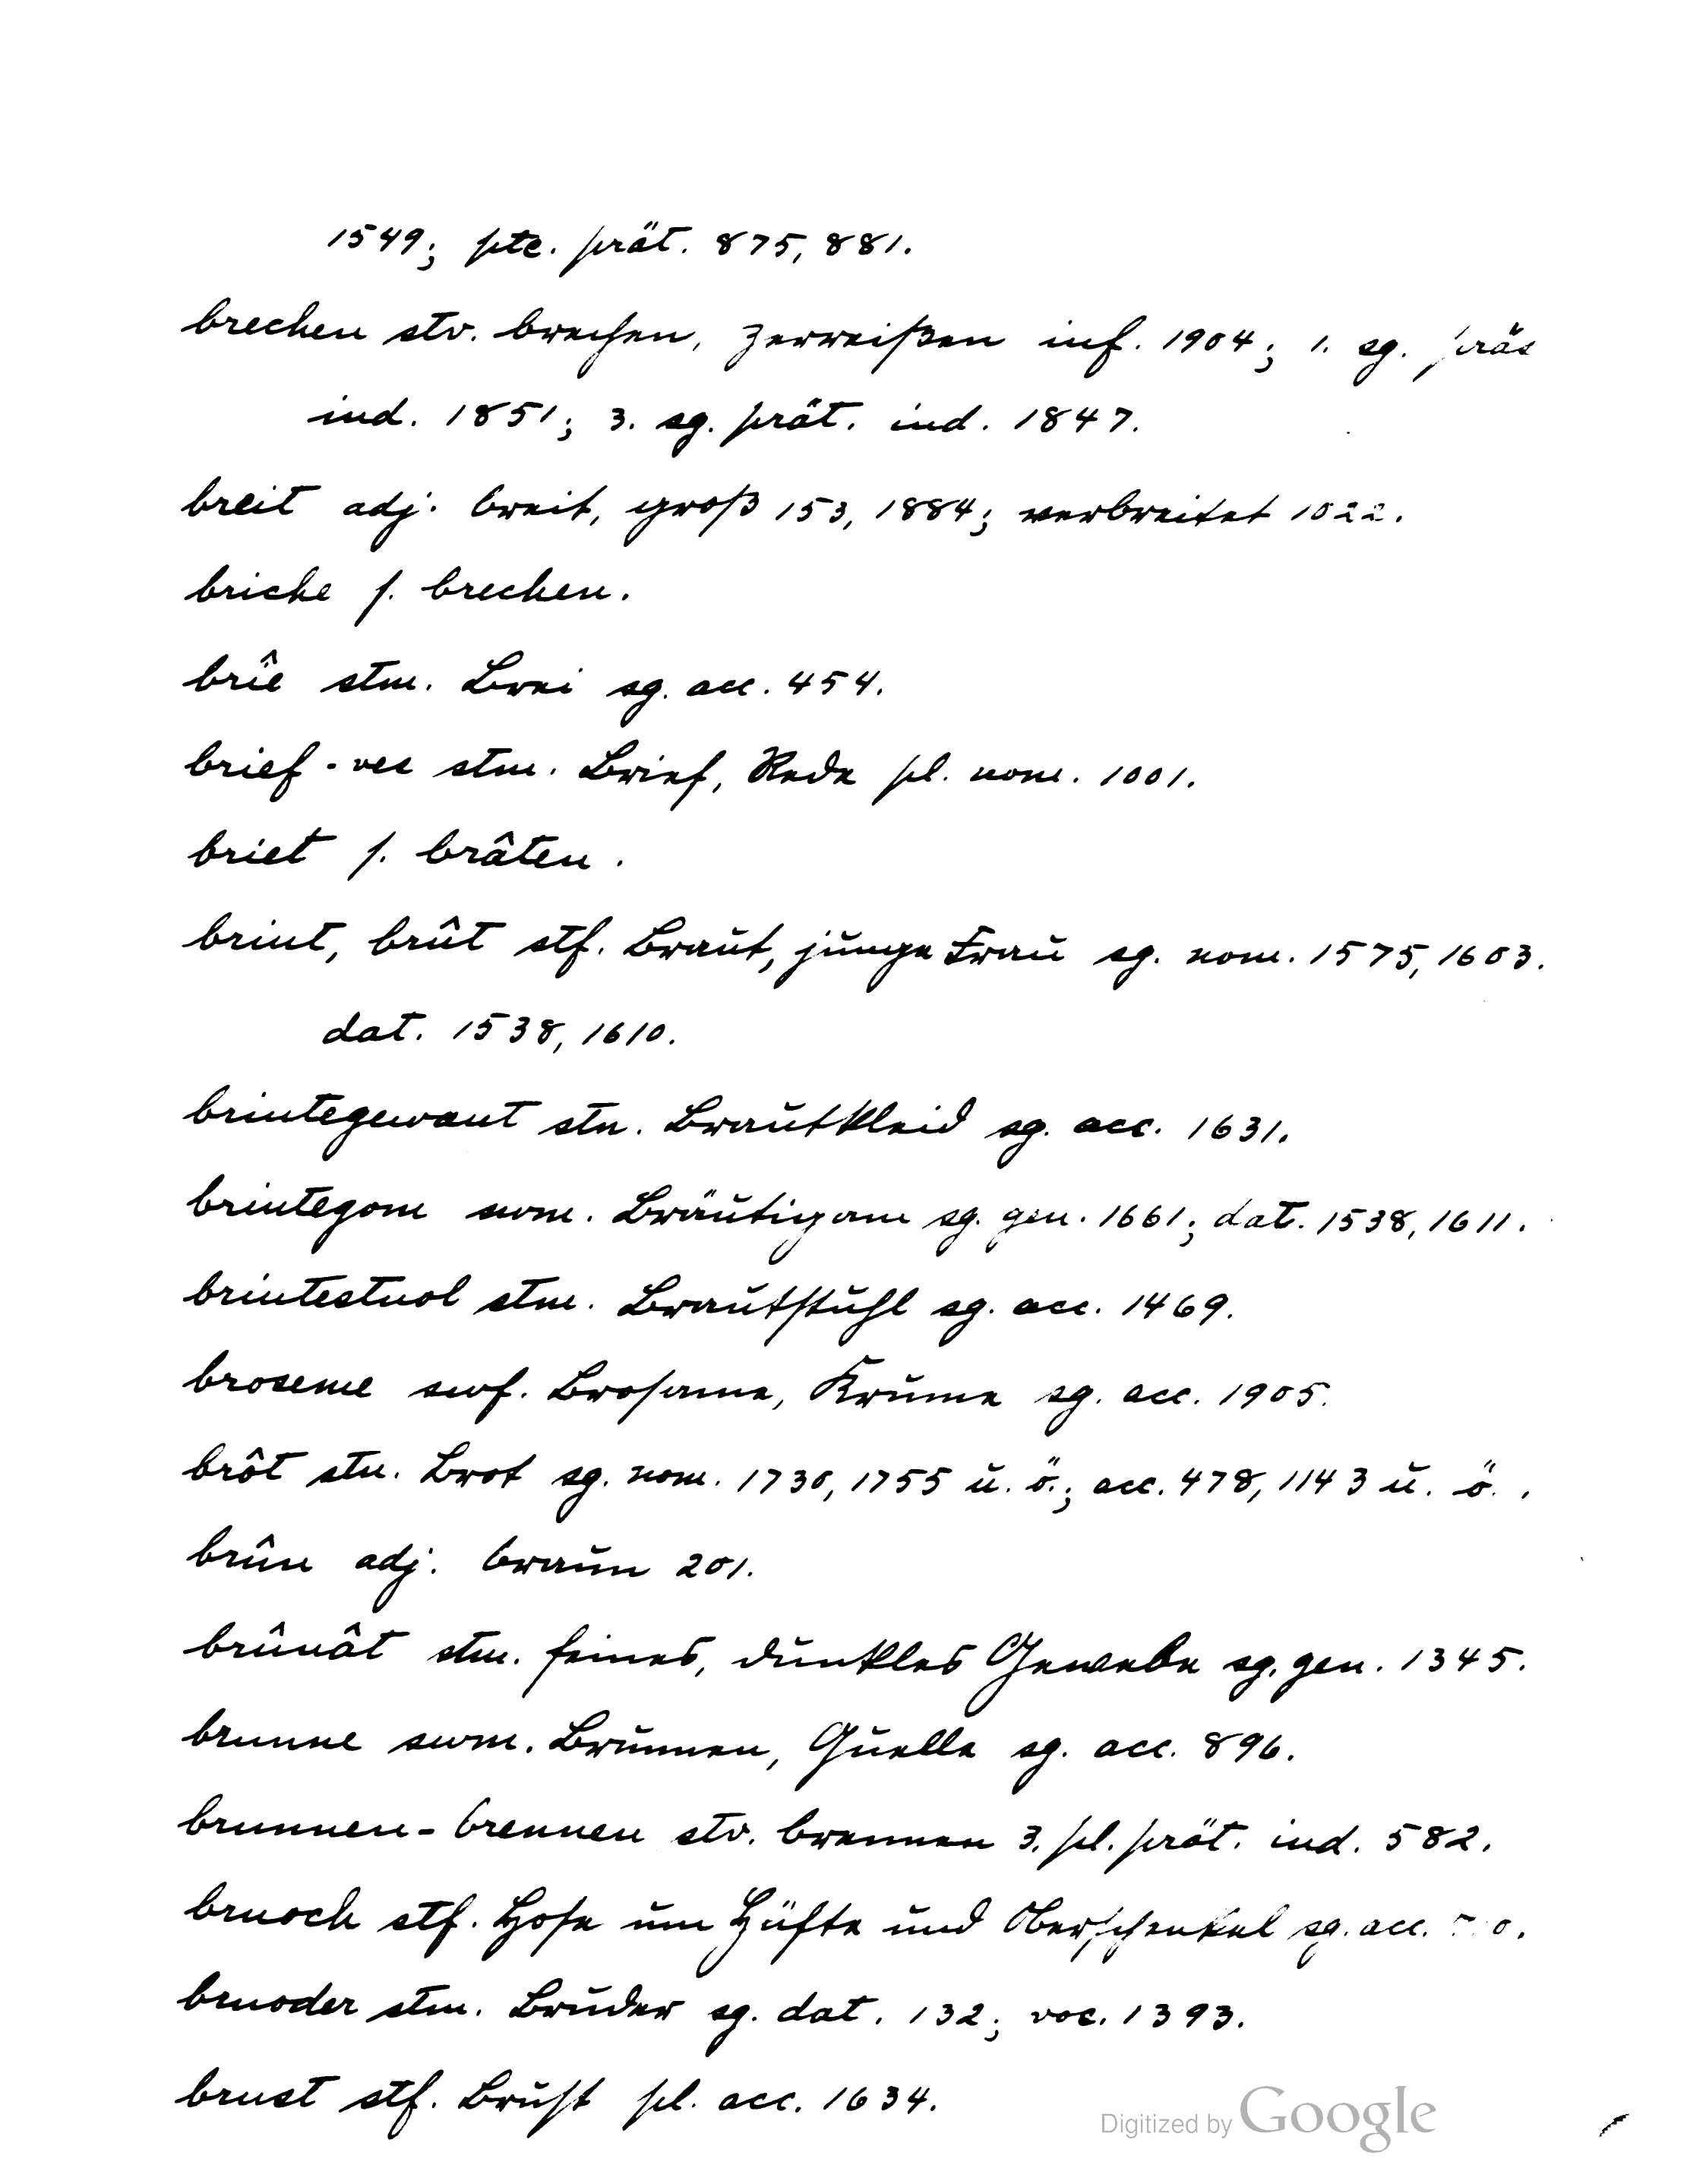 1549; ptc. prät. 875, 881.
brechen stv. brechen, zerreißen inf. 1904; 1. sg. präs
ind. 1851; 3. sg. prät. ind. 1847.
breit adj. breit, groß 153, 1884; verbreitet 1022.
briche s. brechen.
brîe stm. Brei sg. acc. 454.
brief-ves stm. Brief, Rede pl. nom. 1001.
briet s. brâten.
briut, brût stf. Braut, junge Frau sg. nom. 1575, 1603.
dat. 1538, 1610.
briutegewant stn. Brautkleid sg. acc. 1631.
briutegom swm. Bräutigam sg. gen. 1661; dat. 1538, 1611.
briutestuol stm. Brautstuhl sg. acc. 1469.
broseme swf. Brosame, Krume sg. acc. 1905.
brôt stn. Brot sg. nom. 1730, 1755 u. ö.; acc. 478, 1143 u. ö..
brûn adj. braun 201.
brûnât stm. feines, dunkles Gewebe sg. gen. 1345.
brunne swm. Brunnen, Quelle sg. acc. 896.
brunnen-brennen stv. brennen 3. pl. prät. ind. 582.
bruoch stf. Hose um Hüfte und Oberschenkel sg. acc.
bruoder stm. Bruder sg. dat. 132; voc. 1393.
brust stf. Brust pl. acc. 1634.
Digitized by Google